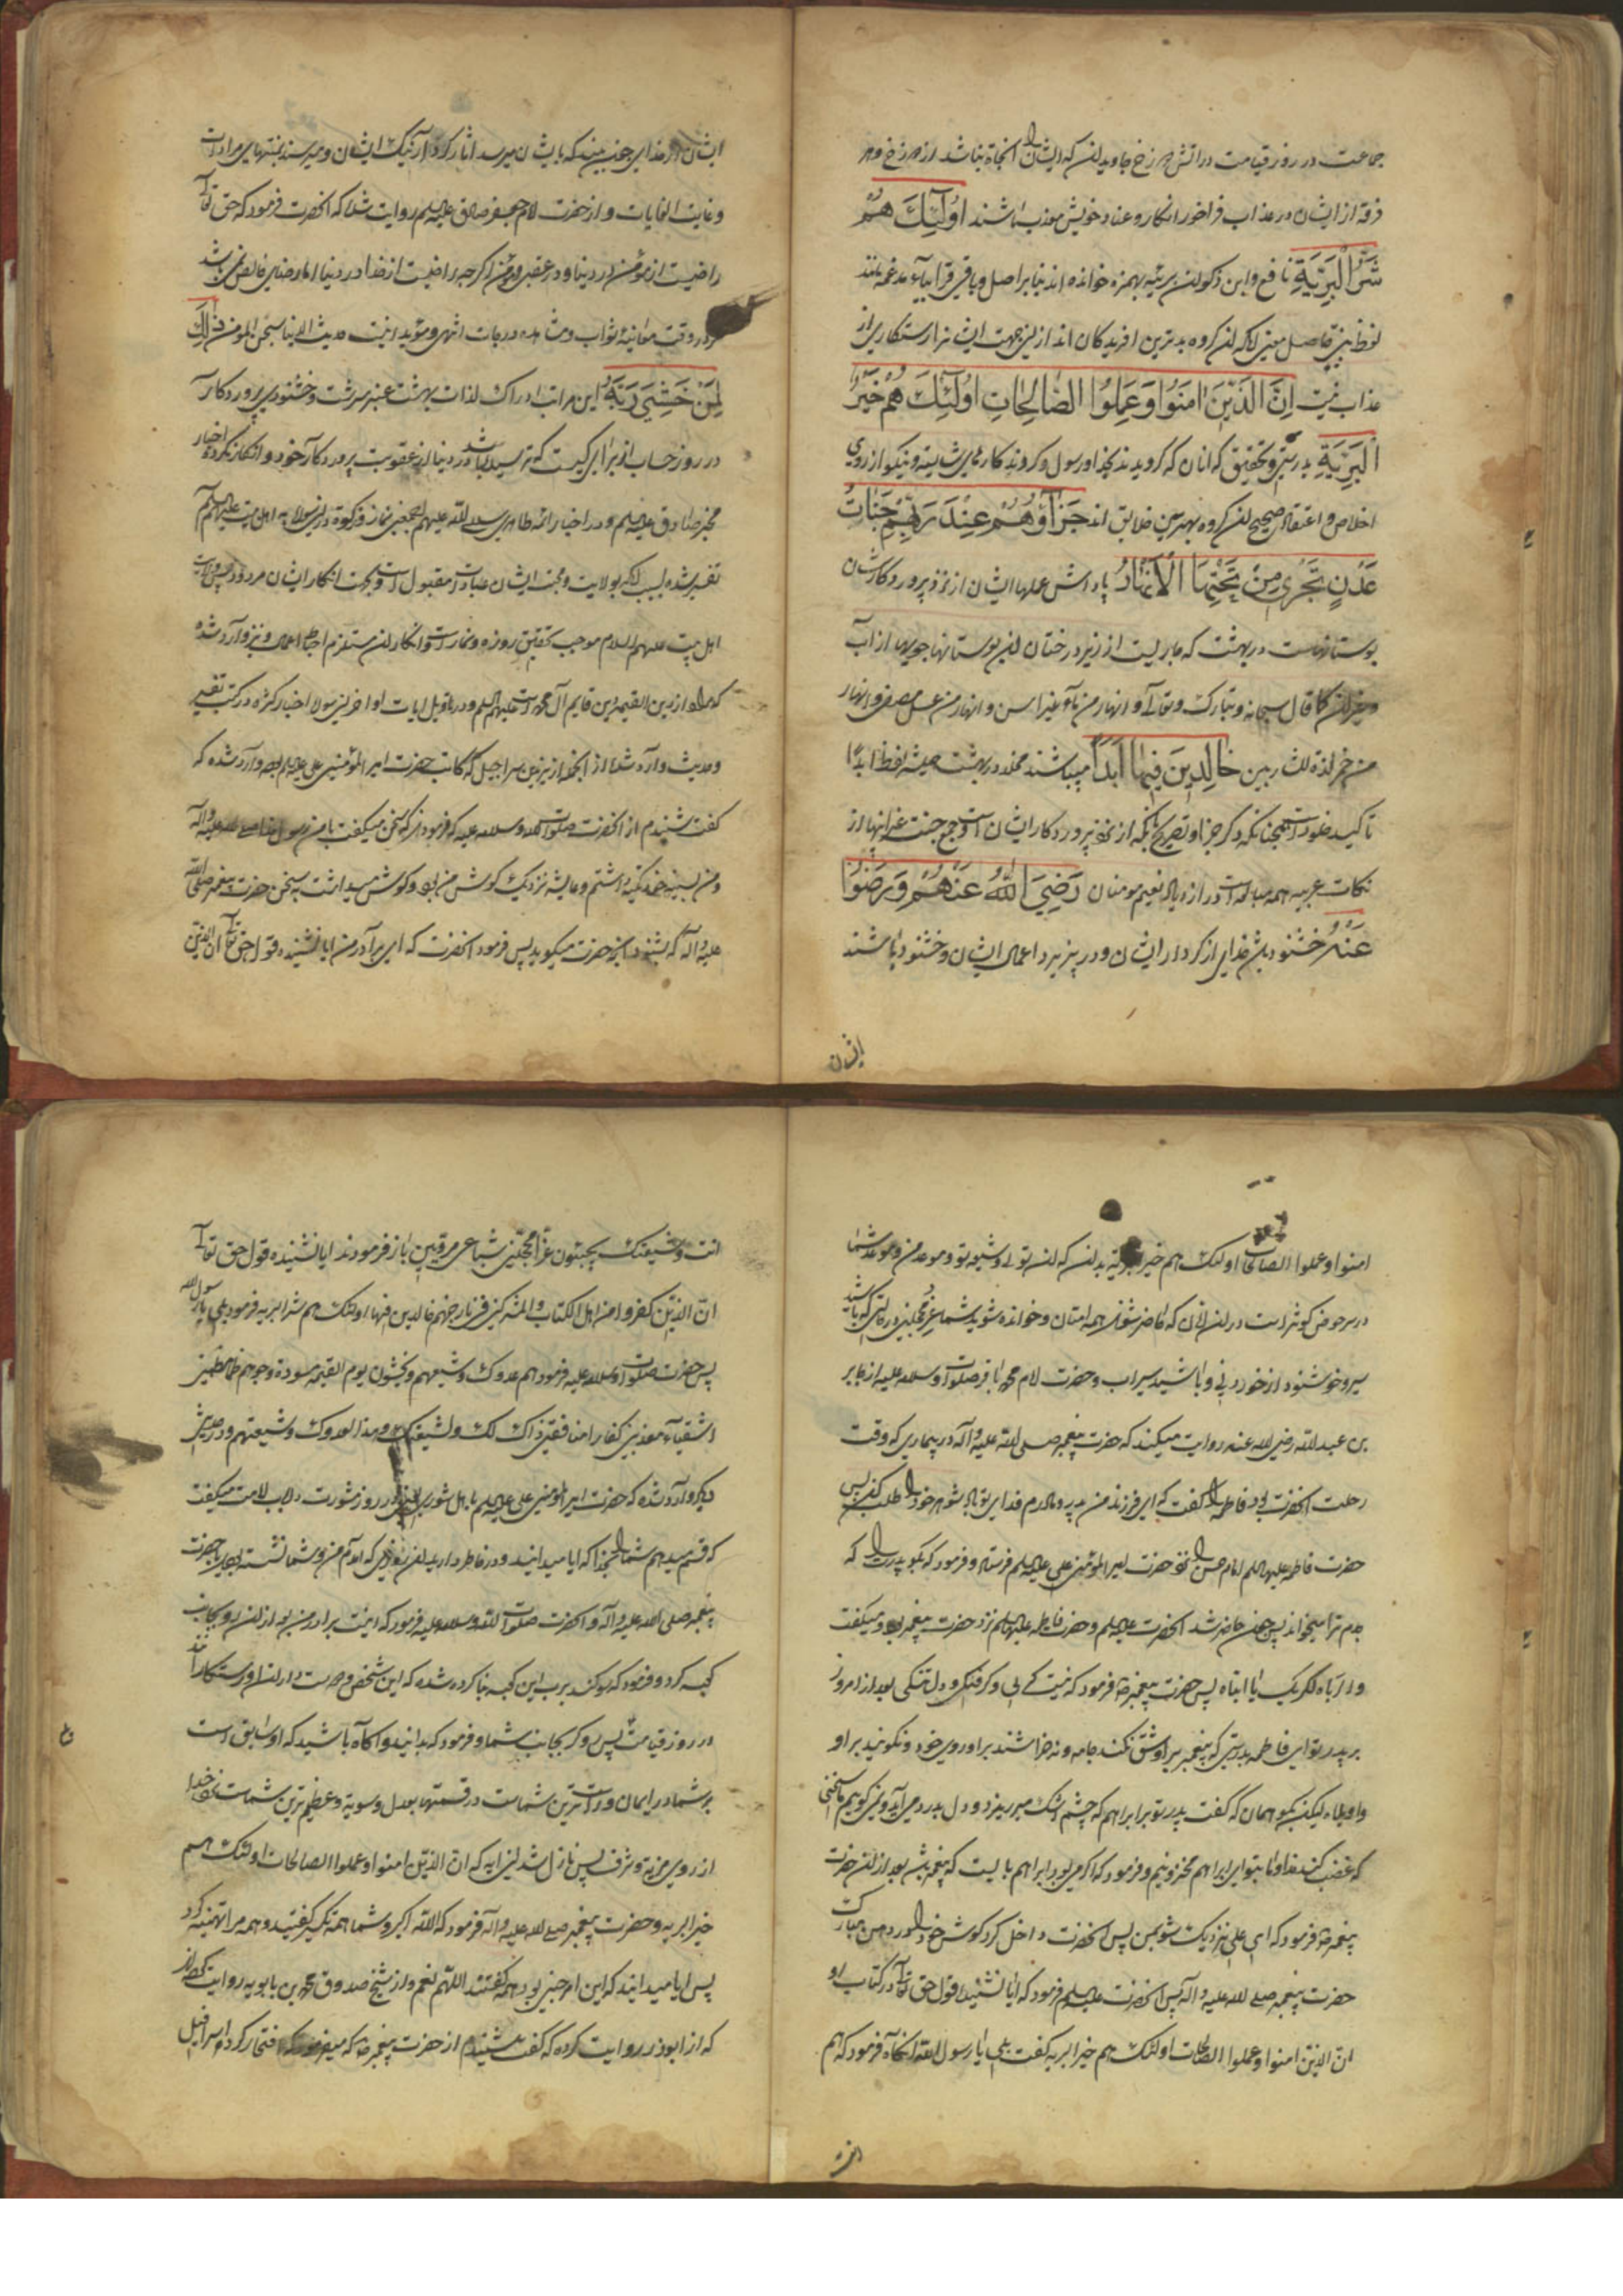 جماعت در روز قیامت در آتش دوزخ جاویدان که ایشان را نجاة نباشد از دوزخ و هر
فرقه از ایشان در عذاب فراخور انکار و عناد خویش معذب باشند اُولٰئِكَ هُمْ
شَرُّ الْبَرِيَّةِ نافع و ابن ذکوان بریئه بهمزه خوانده اند بنا بر اصل و باقی قرا بیاء مدغمه مانند
لفظ نبی حاصل معنی آنکه آن گروه بدترین آفریدگان اند ازین جهت ایشان را رستگاری از
عذاب نیست اِنَّ الَّذِينَ اٰمَنُوا وَعَمِلُوا الصَّالِحَاتِ اُولٰئِكَ هُمْ خَيْرُ
الْبَرِيَّةِ بدرستی و تحقیق که آنان که گرویدند بخدا و رسول و کردند کارهای شایسته و نیکو از روی
اخلاص و اعتقاد صحیح آن گروه بهترین خلایق اند جَزَآؤُهُمْ عِنْدَ رَبِّهِمْ جَنَّاتُ
عَدْنٍ تَجْرِي مِنْ تَحْتِهَا الْاَنْهَارُ پاداش عملهای ایشان از نزد پروردگارشان
بوستانهاست در بهشت که جاریست از زیر درختان این بوستانها جویها از آب
و غیر آن کما قال سبحانه و تبارک و تعالی و انهار من ماء غیر اسن و انهار من عسل مصفی و انهار
من خمر لذة للشاربین خَالِدِينَ فِيهَا اَبَدًا میباشند مخلد در بهشت همیشه لفظ ابدا
تاکید خلود است همچنانکه ذکر جزا و تصریح بآنکه از نزد پروردگار ایشان است و جمع جنت و غیر اینها از
نکات عربیه همه مبالغه است در ازدیاد نعیم مومنان رَضِيَ اللّٰهُ عَنْهُمْ وَرَضُوا
عَنْهُ خشنود باشد خدای از کردار ایشان و در پذیرد اعمال ایشان و خشنود باشند
ایشان
ایشان از خدای جهت بینه که بایشان میرسد آثار کردار نیک ایشان و میرسند بمنتهای مرادات
و غایت الغایات و از حضرت امام جعفر صادق علیه السلم روایت شده که آنحضرت فرمود که حق تعالی
راضیست از مؤمن در دنیا و در عقبی و مؤمن اگرچه راضیست از خدا در دنیا اما رضای خالص نمی باشد
مگر در وقت معاینه ثواب و مشاهده درجات انتهی و مؤید اینست حدیث الدنیا سجن المومن ذٰلِكَ
لِمَنْ خَشِيَ رَبَّهُ این مراتب ادراک لذات بهشت عنبر سرشت و خشنودی پروردگار
در روز حساب از برای کسیست که ترسیده باشد در دنیا از عقوبت پروردگار خود و انکار نکرده اخبار
مخبر صادق علیه السلم و در اخبار ائمه طاهرین سلام الله علیهم اجمعین نماز و زکوة درین سوره به اهل بیت علیهم السلم
تفسیر شده بسبب آنکه بولایت و محبت ایشان عبادات مقبول است و بجهت انکار ایشان مردود پس ولایت
اهل بیت علیهم السلام موجب تحقیق روزه و نماز است و انکار آن مستلزم احباط اعمال و نیز وارد شده
که مراد از دین القیمه دین قایم آل محمد است علیهم السلم و در تاویل ایات اواخر این سوره اخبار کثیره در کتب تفسیر
و حدیث وارد شده از آنجمله از یزید بن شراحیل که کاتب حضرت امیر المؤمنین علی علیه السلم بود وارد شده که
گفت شنیدم از آنحضرت صلوات الله و سلامه علیه که فرمود که سخن میگفت با من رسول خدا صلی الله علیه و آله
و من بسینه خود تکیه داشتم و عایشه نزدیک گوش من بود و گوش میداشت به سخن حضرت پیغمبر صلی الله
علیه و آله که بشنود آنچه حضرت میگوید پس فرمود آنحضرت که ای برادر من ایا نشنیده قول حق تعالی ان الذین
امنوا و عملوا الصالحات اولئک هم خیر البریه بدان که آن تویی و شیعه تو و موعد من و موعد شما
در سر حوض کوثر است در آن زمان که حاضر شوند همه امتان و خوانده شوید شما غر محجلین در حالتی که باشید
سیر و خوشنود از خوردنی و باشید سیراب و حضرت امام محمد باقر صلوات الله و سلامه علیه از جابر
بن عبد الله رضی الله عنه روایت میکند که حضرت پیغمبر صلی الله علیه و آله در بیماری که وقت
رحلت آنحضرت بود فاطمه را گفت که ای فرزند من پدر و مادرم فدای تو باد شوهر خود را طلب کن پس
حضرت فاطمه علیها السلم امام حسن را نزد حضرت امیر المؤمنین علی علیه السلم فرستاد و فرمود که بگو پدرت را که
جدم ترا میخواند پس چون حاضر شد آنحضرت علیه السلم و حضرت فاطمه علیها السلم نزد حضرت پیغمبر بود و میگفت
وا کرباه لکربک یا ابتاه پس حضرت پیغمبر ص فرمود که نیست کربی و گرفتگی و دل تنگی بعد از امروز
بر پدر تو ای فاطمه بدرستی که پیغمبر بر او شق نکنند جامه و نه خراشند بر او روی خود و نگویند بر او
واویلاه لیکن بگو همان که گفت پدر تو بر ابراهیم که چشم اشک میریزد و دل بدرد می آید و نمی گوییم ما سخنی
که غضب کند خدا و ما بتو ای ابراهیم محزونیم و فرمود که اگر می بود ابراهیم بایست که پیغمبر باشد بعد از آن حضرت
پیغمبر ص فرمود که ای علی نزدیک شو بمن پس آنحضرت داخل کرد گوش خود را در دهن مبارک
حضرت پیغمبر صلی الله علیه و آله پس آنحضرت علیه السلم فرمود که ایا نشنیده قول حق تعالی در کتاب او
ان الذین امنوا و عملوا الصالحات اولئک هم خیر البریه گفت بلی یا رسول الله آنگاه فرمود که هم
انت
انت و شیعتک یجیئون غرا محجلین شباعی مرویین باز فرمودند ایا نشنیده قول حق تعالی
ان الذین کفروا من اهل الکتاب و المشرکین فی نار جهنم خالدین فیها اولئک هم شر البریه فرمود بلی یا رسول الله
پس حضرت صلوات الله و سلامه علیه فرمود هم عدوک و شیعتهم و یجیئون یوم القیمه مسودة وجوههم ظماء مظمئین
اشقیاء معذبین کفارا منافقین ذاک لک و لشیعتک و هذا لعدوک و شیعتهم و در حدیث
دیگر وارد شده که حضرت امیر المؤمنین علی علیه السلم با اهل شوری در روز مشورت در باب امامت میگفت
که قسم میدهم شما را بخدا که ایا میدانید و در خاطر دارید آن روزی که آمدم من و شما نشسته بودید با حضرت
پیغمبر صلی الله علیه و آله و آنحضرت صلوات الله و سلامه علیه فرمود که اینست برادر من بعد از آن رو بجانب
کعبه کرد و فرمود که سوگند برب این کعبه بنا کرده شده که این شخص و دوست داران او رستگارانند
در روز قیامت پس رو کرد بجانب شما و فرمود که بدانید و آگاه باشید که او سابق است
بر شما در ایمان و راست ترین شماست در قسمتها بعدل و سویة و عظیم ترین شماست نزد خدا
از روی مزیت و شرف پس نازل شد این ایه که ان الذین امنوا و عملوا الصالحات اولئک هم
خیر البریه و حضرت پیغمبر صلی الله علیه و آله فرمود که الله اکبر و شما همه تکبیر گفتید و همه مرا تهنیه کرد
پس ایا میدانید که این امر چنین بود همه گفتند اللهم نعم و از شیخ صدوق محمد بن بابویه روایت
که از ابوذر روایت کرده که گفت شنیدم از حضرت پیغمبر ص که میفرمود که افتخار کرد اسرافیل